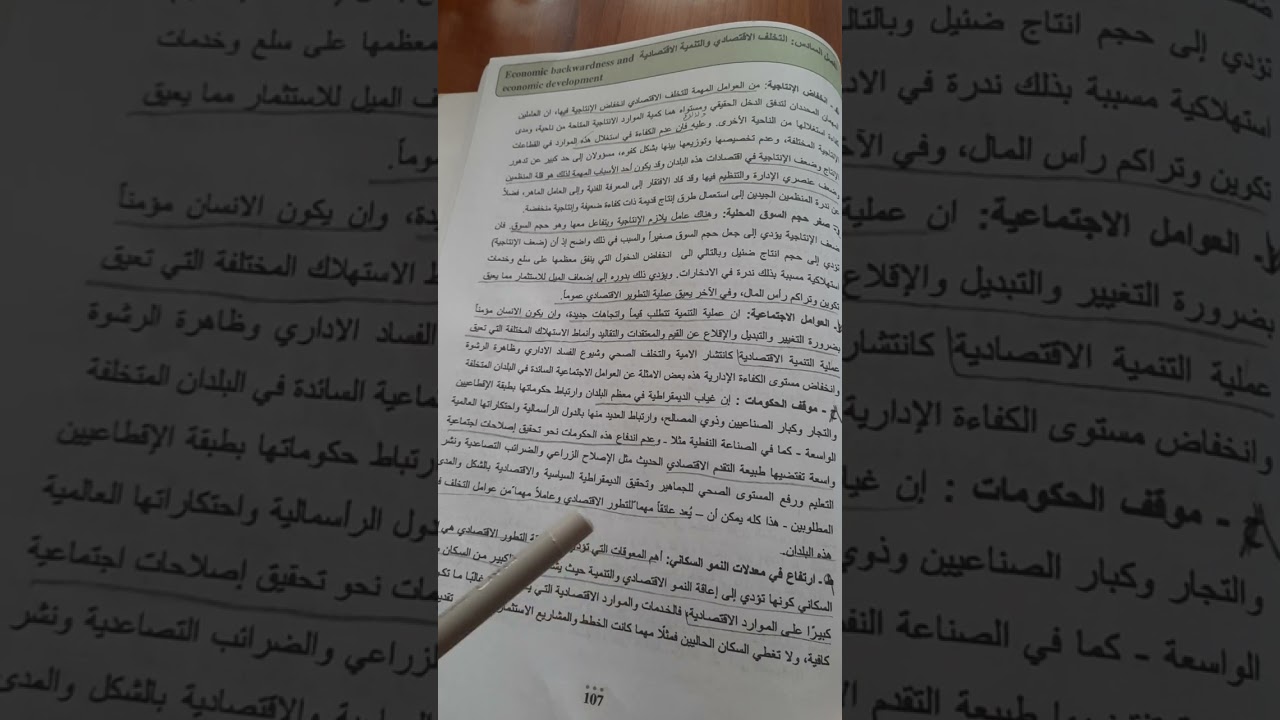 الفصل السادس: التخلف الاقتصادي والتنمية الاقتصادية Economic backwardness and
economic development
انخفاض الإنتاجية: من العوامل المهمة للتخلف الاقتصادي انخفاض الإنتاجية فيها، ان العاملين
المحددان لتدفق الدخل الحقيقي ومستواه هما كمية الموارد الانتاجية المتاحة من ناحية، ومدى
كفاءة استغلالها من الناحية الأخرى. وعليه فإن عدم الكفاءة في استغلال هذه الموارد في القطاعات
الإنتاجية المختلفة، وعدم تخصيصها وتوزيعها بينها بشكل كفوء، مسؤولان إلى حد كبير عن تدهور
الإنتاج وضعف الإنتاجية في اقتصادات هذه البلدان وقد يكون أحد الأسباب المهمة لذلك هو قلة المنظمين
وضعف عنصري الإدارة والتنظيم فيها وقد قاد الافتقار إلى المعرفة الفنية وإلى العامل الماهر، فضلاً
عن ندرة المنظمين الجيدين إلى استعمال طرق إنتاج قديمة ذات كفاءة ضعيفة وإنتاجية منخفضة.
صغر حجم السوق المحلية: وهناك عامل يلازم الإنتاجية ويتفاعل معها وهو حجم السوق. فان
ضعف الإنتاجية يؤدي إلى جعل حجم السوق صغيراً والسبب في ذلك واضح إذ أن (ضعف الإنتاجية)
تؤدي إلى حجم انتاج ضئيل وبالتالي الى انخفاض الدخول التي ينفق معظمها على سلع وخدمات
استهلاكية مسببة بذلك ندرة في الادخارات. ويؤدي ذلك بدوره إلى إضعاف الميل للاستثمار مما يعيق
تكوين وتراكم رأس المال، وفي الآخر يعيق عملية التطوير الاقتصادي عموماً.
العوامل الاجتماعية: ان عملية التنمية تتطلب قيماً واتجاهات جديدة، وان يكون الانسان مؤمناً
بضرورة التغيير والتبديل والإقلاع عن القيم والمعتقدات والتقاليد وأنماط الاستهلاك المختلفة التي تعيق
عملية التنمية الاقتصادية كانتشار الامية والتخلف الصحي وشيوع الفساد الاداري وظاهرة الرشوة
وانخفاض مستوى الكفاءة الإدارية هذه بعض الامثلة عن العوامل الاجتماعية السائدة في البلدان المتخلفة
ح - موقف الحكومات : إن غياب الديمقراطية في معظم البلدان وارتباط حكوماتها بطبقة الإقطاعيين
والتجار وكبار الصناعيين وذوي المصالح، وارتباط العديد منها بالدول الرأسمالية واحتكاراتها العالمية
الواسعة - كما في الصناعة النفطية مثلا - وعدم اندفاع هذه الحكومات نحو تحقيق إصلاحات اجتماعية
واسعة تقتضيها طبيعة التقدم الاقتصادي الحديث مثل الإصلاح الزراعي والضرائب التصاعدية ونشر
التعليم ورفع المستوى الصحي للجماهير وتحقيق الديمقراطية السياسية والاقتصادية بالشكل والمدى
المطلوبين - هذا كله يمكن أن – يُعد عائقاً مهماً للتطور الاقتصادي وعاملاً مهماً من عوامل التخلف
هذه البلدان.
ارتفاع في معدلات النمو السكاني: أهم المعوقات التي تؤدي التطور الاقتصادي هي
السكاني كونها تؤدي إلى إعاقة النمو الاقتصادي والتنمية حيث الكبير من السكان
كبيرًا على الموارد الاقتصادية فالخدمات والموارد الاقتصادية التي غالبًا ما
كافية، ولا تغطي السكان الحاليين فمثلًا مهما كانت الخطط والمشاريع
107